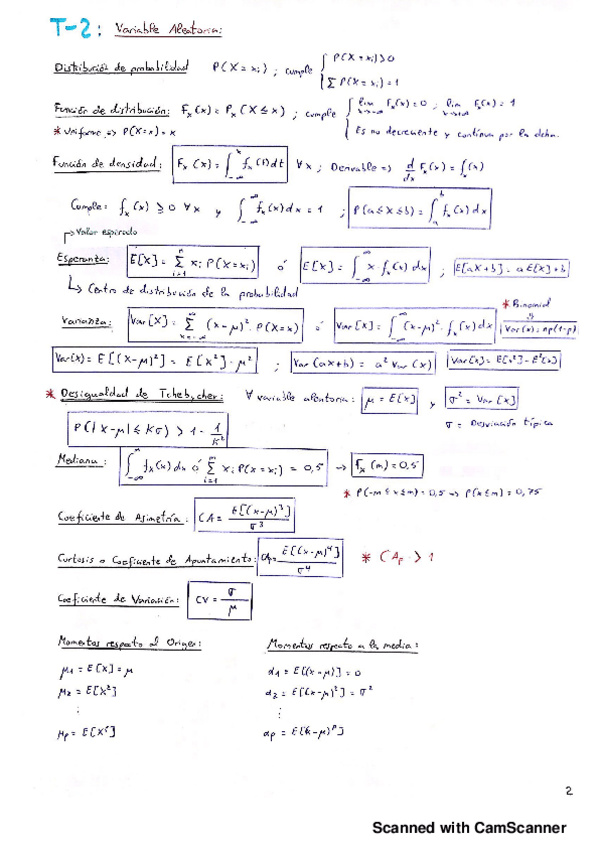 T-2: Variable Aleatoria:
Distribución de probabilidad P(X=xi); cumple { P(X=xi)>0
Σ P(X=xi)=1
Función de distribución: Fx(x) = Px(X≤x); cumple { lim x→-∞ Fx(x)=0; lim x→+∞ Fx(x)=1
* Uniforme => P(X=x)=x
Es no decreciente y continua por la dcha.
Función de densidad: Fx(x) = ∫-∞^x fx(t)dt ∀x; Derivable => d/dx Fx(x) = fx(x)
Cumple: fx(x) ≥ 0 ∀x y ∫-∞^∞ fx(x)dx = 1; P(a≤X≤b) = ∫a^b fx(x)dx
↳ Valor esperado
Esperanza: E[X] = Σi=1^n xi P(X=xi) ó E[X] = ∫-∞^∞ x·fx(x)dx; E[aX+b] = aE[X]+b
↳ Centro de distribución de la probabilidad
* Binomial
Varianza: Var[X] = Σ (x-μ)²·P(X=x) ó Var[X] = ∫-∞^∞ (x-μ)²·fx(x)dx Var(x)=np(1-p)
Var(x) = E[(X-μ)²] = E[X²]-μ²; Var(ax+b) = a² Var(x) Var[X]=E[x²]-E²[x]
* Desigualdad de Tchebycher: ∀ variable aleatoria: μ = E[X] y σ² = Var[X]
σ = Desviación típica
P(|X-μ| ≤ Kσ) > 1 - 1/K²
Mediana: ∫-∞^m fx(x)dx ó Σi=1^m xi P(X=xi) = 0,5 → fx(m)=0,5
* P(-m≤x≤m)=0,5 => P(x≤m)=0,75
Coeficiente de Asimetría: CA = E[(x-μ)³]/σ³
Curtosis o Coeficiente de Apuntamiento: CAp = E[(x-μ)⁴]/σ⁴ * CAp > 1
Coeficiente de Variación: CV = σ/μ
Momentos respecto al Origen: Momentos respecto a la media:
μ1 = E[X] = μ α1 = E[(x-μ)] = 0
μ2 = E[X²] α2 = E[(x-μ)²] = σ²
⋮ ⋮
μp = E[X^p] αp = E[(x-μ)^p]
2
Scanned with CamScanner